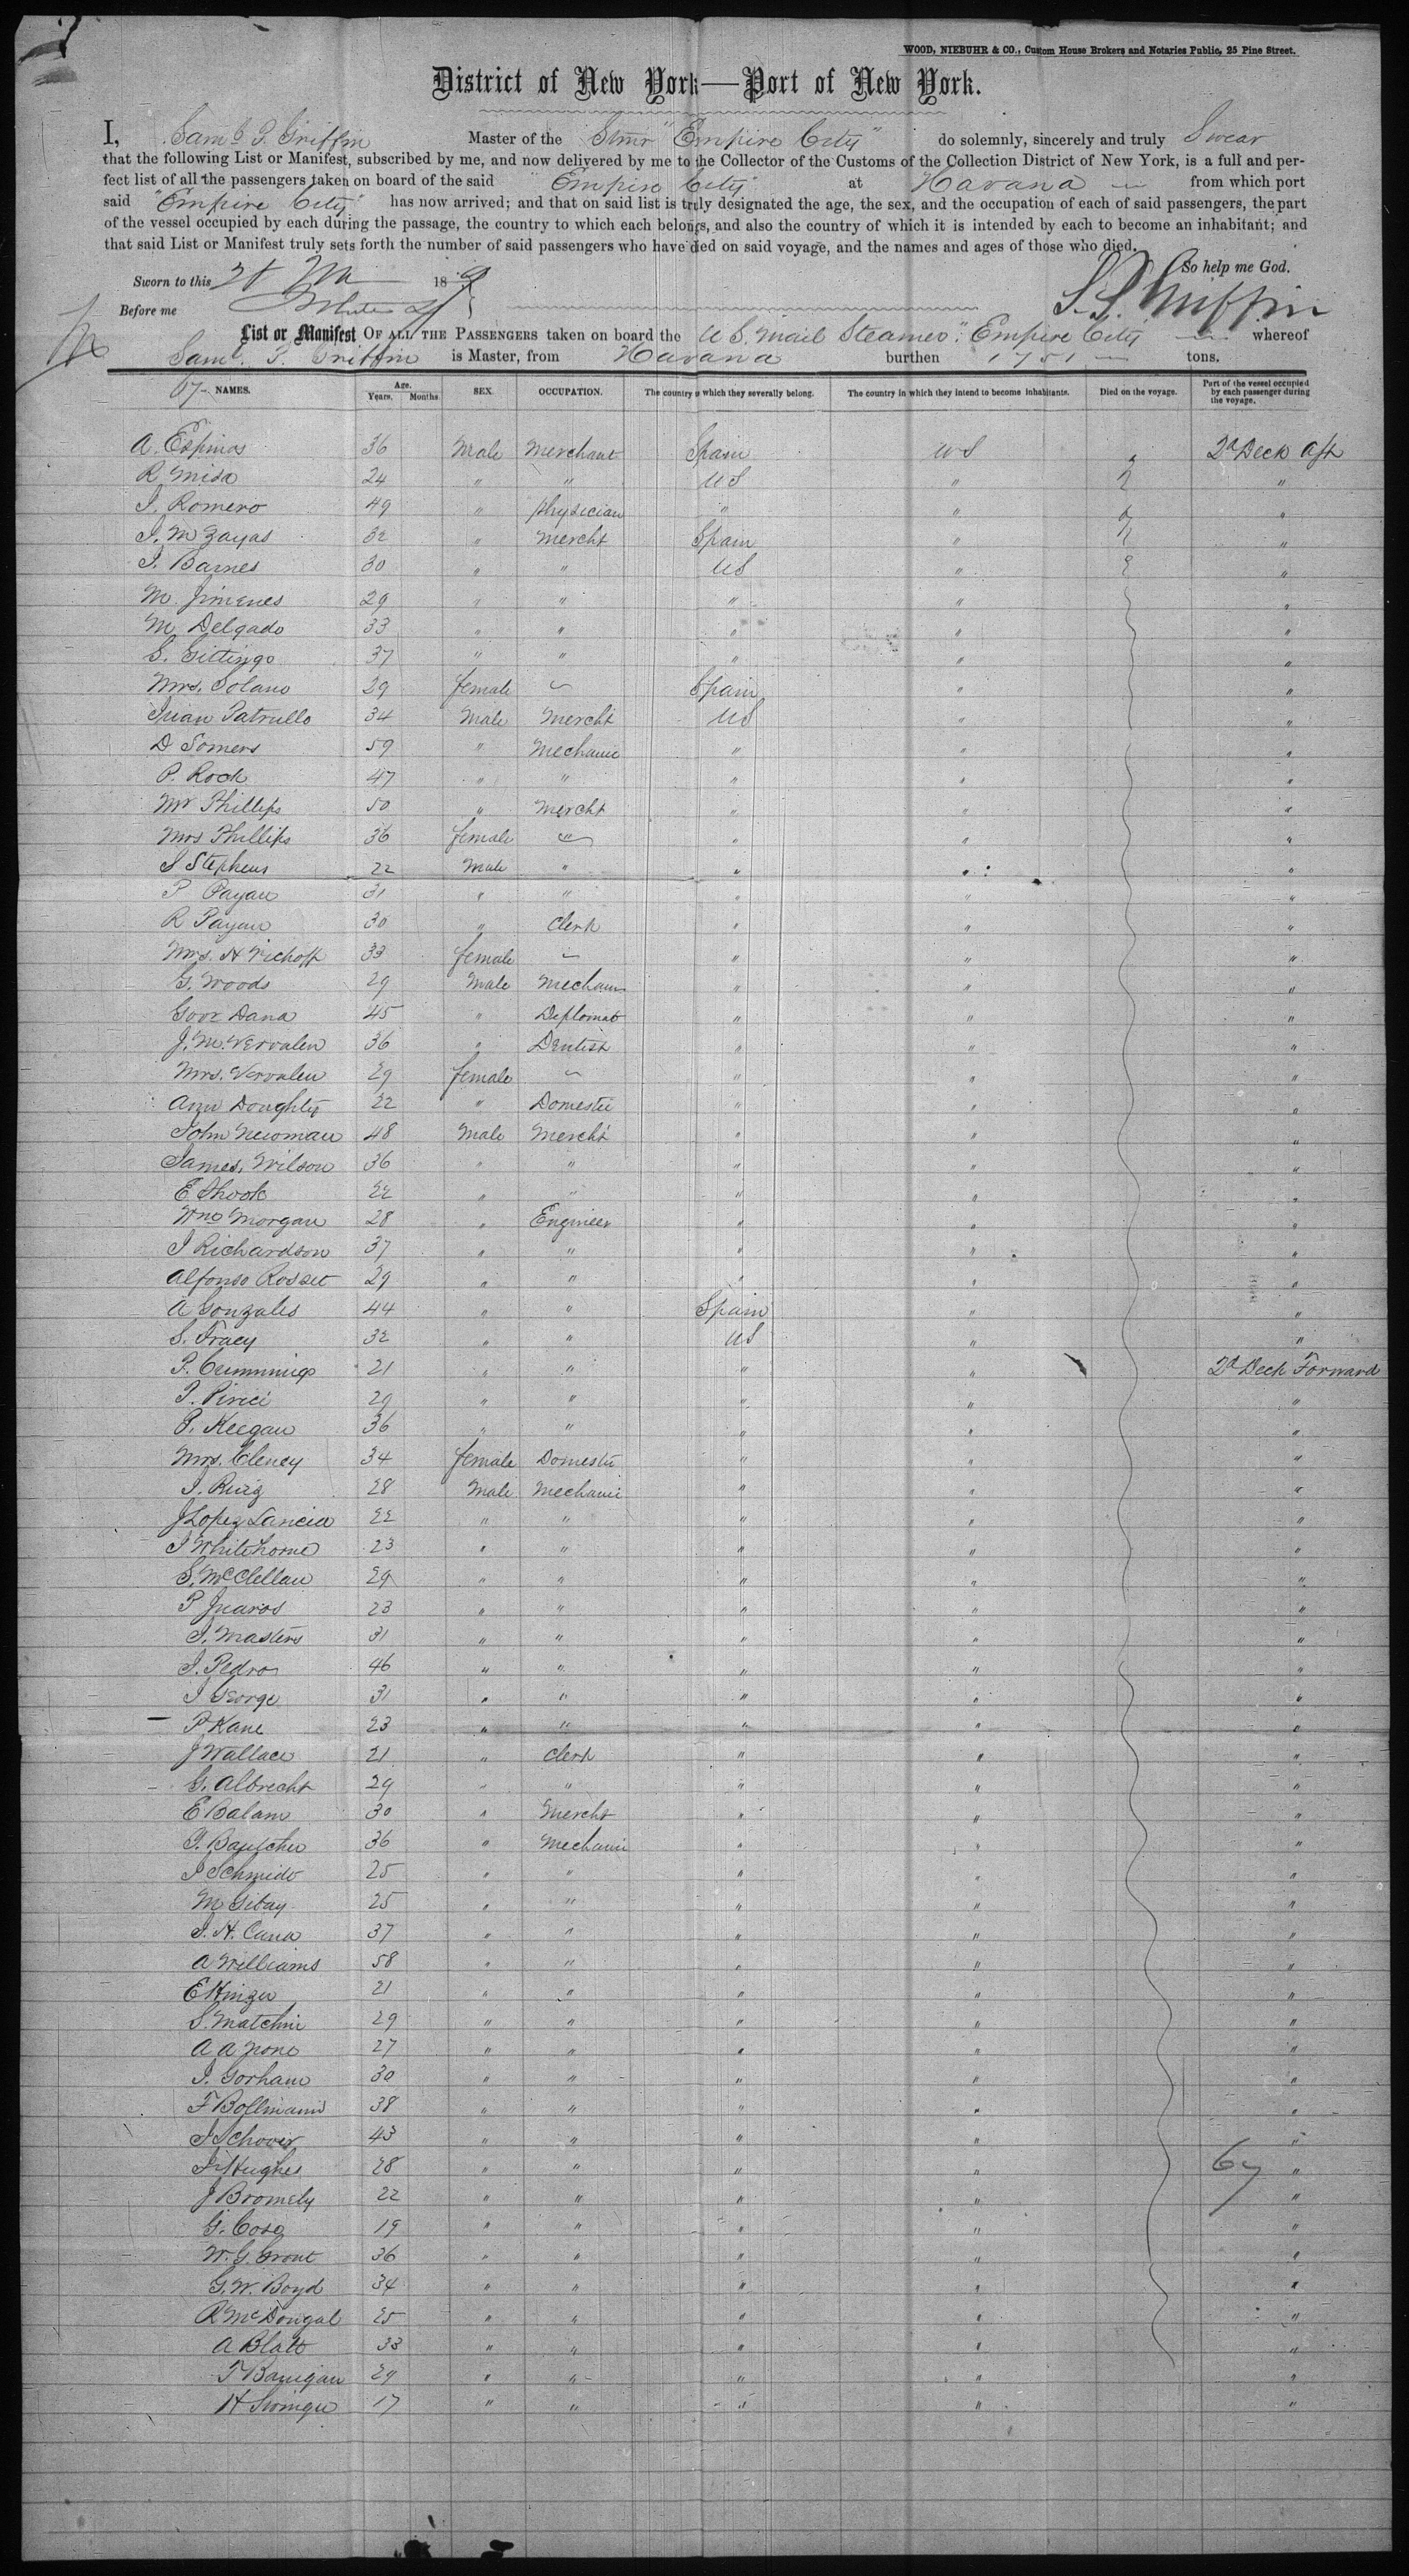 WOOD, NIEBUHR & CO., Custom House Brokers and Notaries Public, 25 Pine Street.
District of New York—Port of New York.
I, Saml. P. Griffin Master of the Stmr "Empire City" do solemnly, sincerely and truly Swear
that the following List or Manifest, subscribed by me, and now delivered by me to the Collector of the Customs of the Collection District of New York, is a full and per-
fect list of all the passengers taken on board of the said "Empire City" at Havana from which port
said "Empire City" has now arrived; and that on said list is truly designated the age, the sex, and the occupation of each of said passengers, the part
of the vessel occupied by each during the passage, the country to which each belongs, and also the country of which it is intended by each to become an inhabitant; and
that said List or Manifest truly sets forth the number of said passengers who have died on said voyage, and the names and ages of those who died.
So help me God.
Sworn to this 18
Before me
S. P. Griffin
List or Manifest OF ALL THE PASSENGERS taken on board the U S. Mail Steamer "Empire City" whereof
Saml. P. Griffin is Master, from Havana burthen 1751 tons.
67 NAMES. Age. Years. Months. SEX. OCCUPATION. The country to which they severally belong. The country in which they intend to become inhabitants. Died on the voyage. Part of the vessel occupied by each passenger during the voyage.
A. Espinos 36 Male Merchant Spain US 2d Deck Aft
R Misa 24 " " US " "
J. Romero 49 " Physician " " "
J. M Zayas 32 " Mercht Spain " "
J. Barnes 30 " " US " "
M. Jimenes 29 " " " " "
M Delgado 33 " " " " "
S. Gittings 37 " " " " "
Mrs. Solano 29 female Spain " "
Juan Patrullo 34 Male Mercht US " "
D Somers 59 " Mechanic " " "
P. Rock 47 " " " " "
Mr Phillips 50 " Mercht " " "
Mrs Phillips 36 female " " " "
J Stephens 22 Male " " " "
P Payan 31 " " " " "
R Payan 30 " Clerk " " "
Mrs. H Vichoff 33 female " " "
G. Woods 29 Male Mechanic " " "
Govr Dana 45 " Diplomat " " "
J. M. Vervalen 36 " Dentist " " "
Mrs. Vervalen 29 female " " "
Ann Doughty 22 " Domestic " " "
John Newman 48 Male Mercht " " "
James Wilson 36 " " " " "
E Shook 22 " " " " "
Wm Morgan 28 " Engineer " " "
J Richardson 37 " " " " "
Alfonso Rosset 29 " " " " "
A Gonzales 44 " " Spain " "
S. Tracy 32 " " US " "
P. Cummings 21 " " " " 2d Deck Forward
P. Pirici 29 " " " " "
P. Keegan 36 " " " " "
Mrs. Cleney 34 female Domestic " " "
J. Ruiz 28 Male Mechanic " " "
J Lopez 22 " " " " "
J Whitehorne 23 " " " " "
S. McClellan 29 " " " " "
P Juaros 23 " " " " "
J. Masters 31 " " " " "
J. Pedro 46 " " " " "
J George 31 " " " " "
P Kane 23 " " " " "
J Wallace 21 " Clerk " " "
G. Albrecht 29 " " " " "
E Balam 30 " Mercht " " "
36 " Mechanic " " "
J Schmidt 25 " " " " "
M Gibay 25 " " " " "
J. H. Cana 37 " " " " "
A Williams 58 " " " " "
E Kinzu 21 " " " " "
S. Matchin 29 " " " " "
A A None 27 " " " " "
J. Gorham 30 " " " " "
F Bollmann 38 " " " " "
J Schover 43 " " " " "
J. Hughes 28 " " " " 67 "
J Bromely 22 " " " " "
G. Cosa 19 " " " " "
W. G. Grout 36 " " " " "
G. W. Boyd 34 " " " " "
R McDougal 25 " " " " "
A Blatt 33 " " " " "
T Banigan 29 " " " " "
H 17 " " " " "